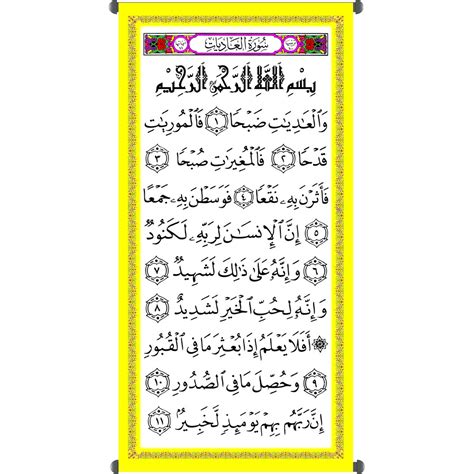 سُورَةُ العَادِيَات
بِسْمِ ٱللَّهِ ٱلرَّحْمَٰنِ ٱلرَّحِيمِ
وَٱلْعَٰدِيَٰتِ ضَبْحًا ١ فَٱلْمُورِيَٰتِ
قَدْحًا ٢ فَٱلْمُغِيرَٰتِ صُبْحًا ٣
فَأَثَرْنَ بِهِۦ نَقْعًا ٤ فَوَسَطْنَ بِهِۦ جَمْعًا
٥ إِنَّ ٱلْإِنسَٰنَ لِرَبِّهِۦ لَكَنُودٌ
٦ وَإِنَّهُۥ عَلَىٰ ذَٰلِكَ لَشَهِيدٌ ٧
وَإِنَّهُۥ لِحُبِّ ٱلْخَيْرِ لَشَدِيدٌ ٨
۞ أَفَلَا يَعْلَمُ إِذَا بُعْثِرَ مَا فِى ٱلْقُبُورِ
٩ وَحُصِّلَ مَا فِى ٱلصُّدُورِ ١٠
إِنَّ رَبَّهُم بِهِمْ يَوْمَئِذٍ لَّخَبِيرٌۢ ١١